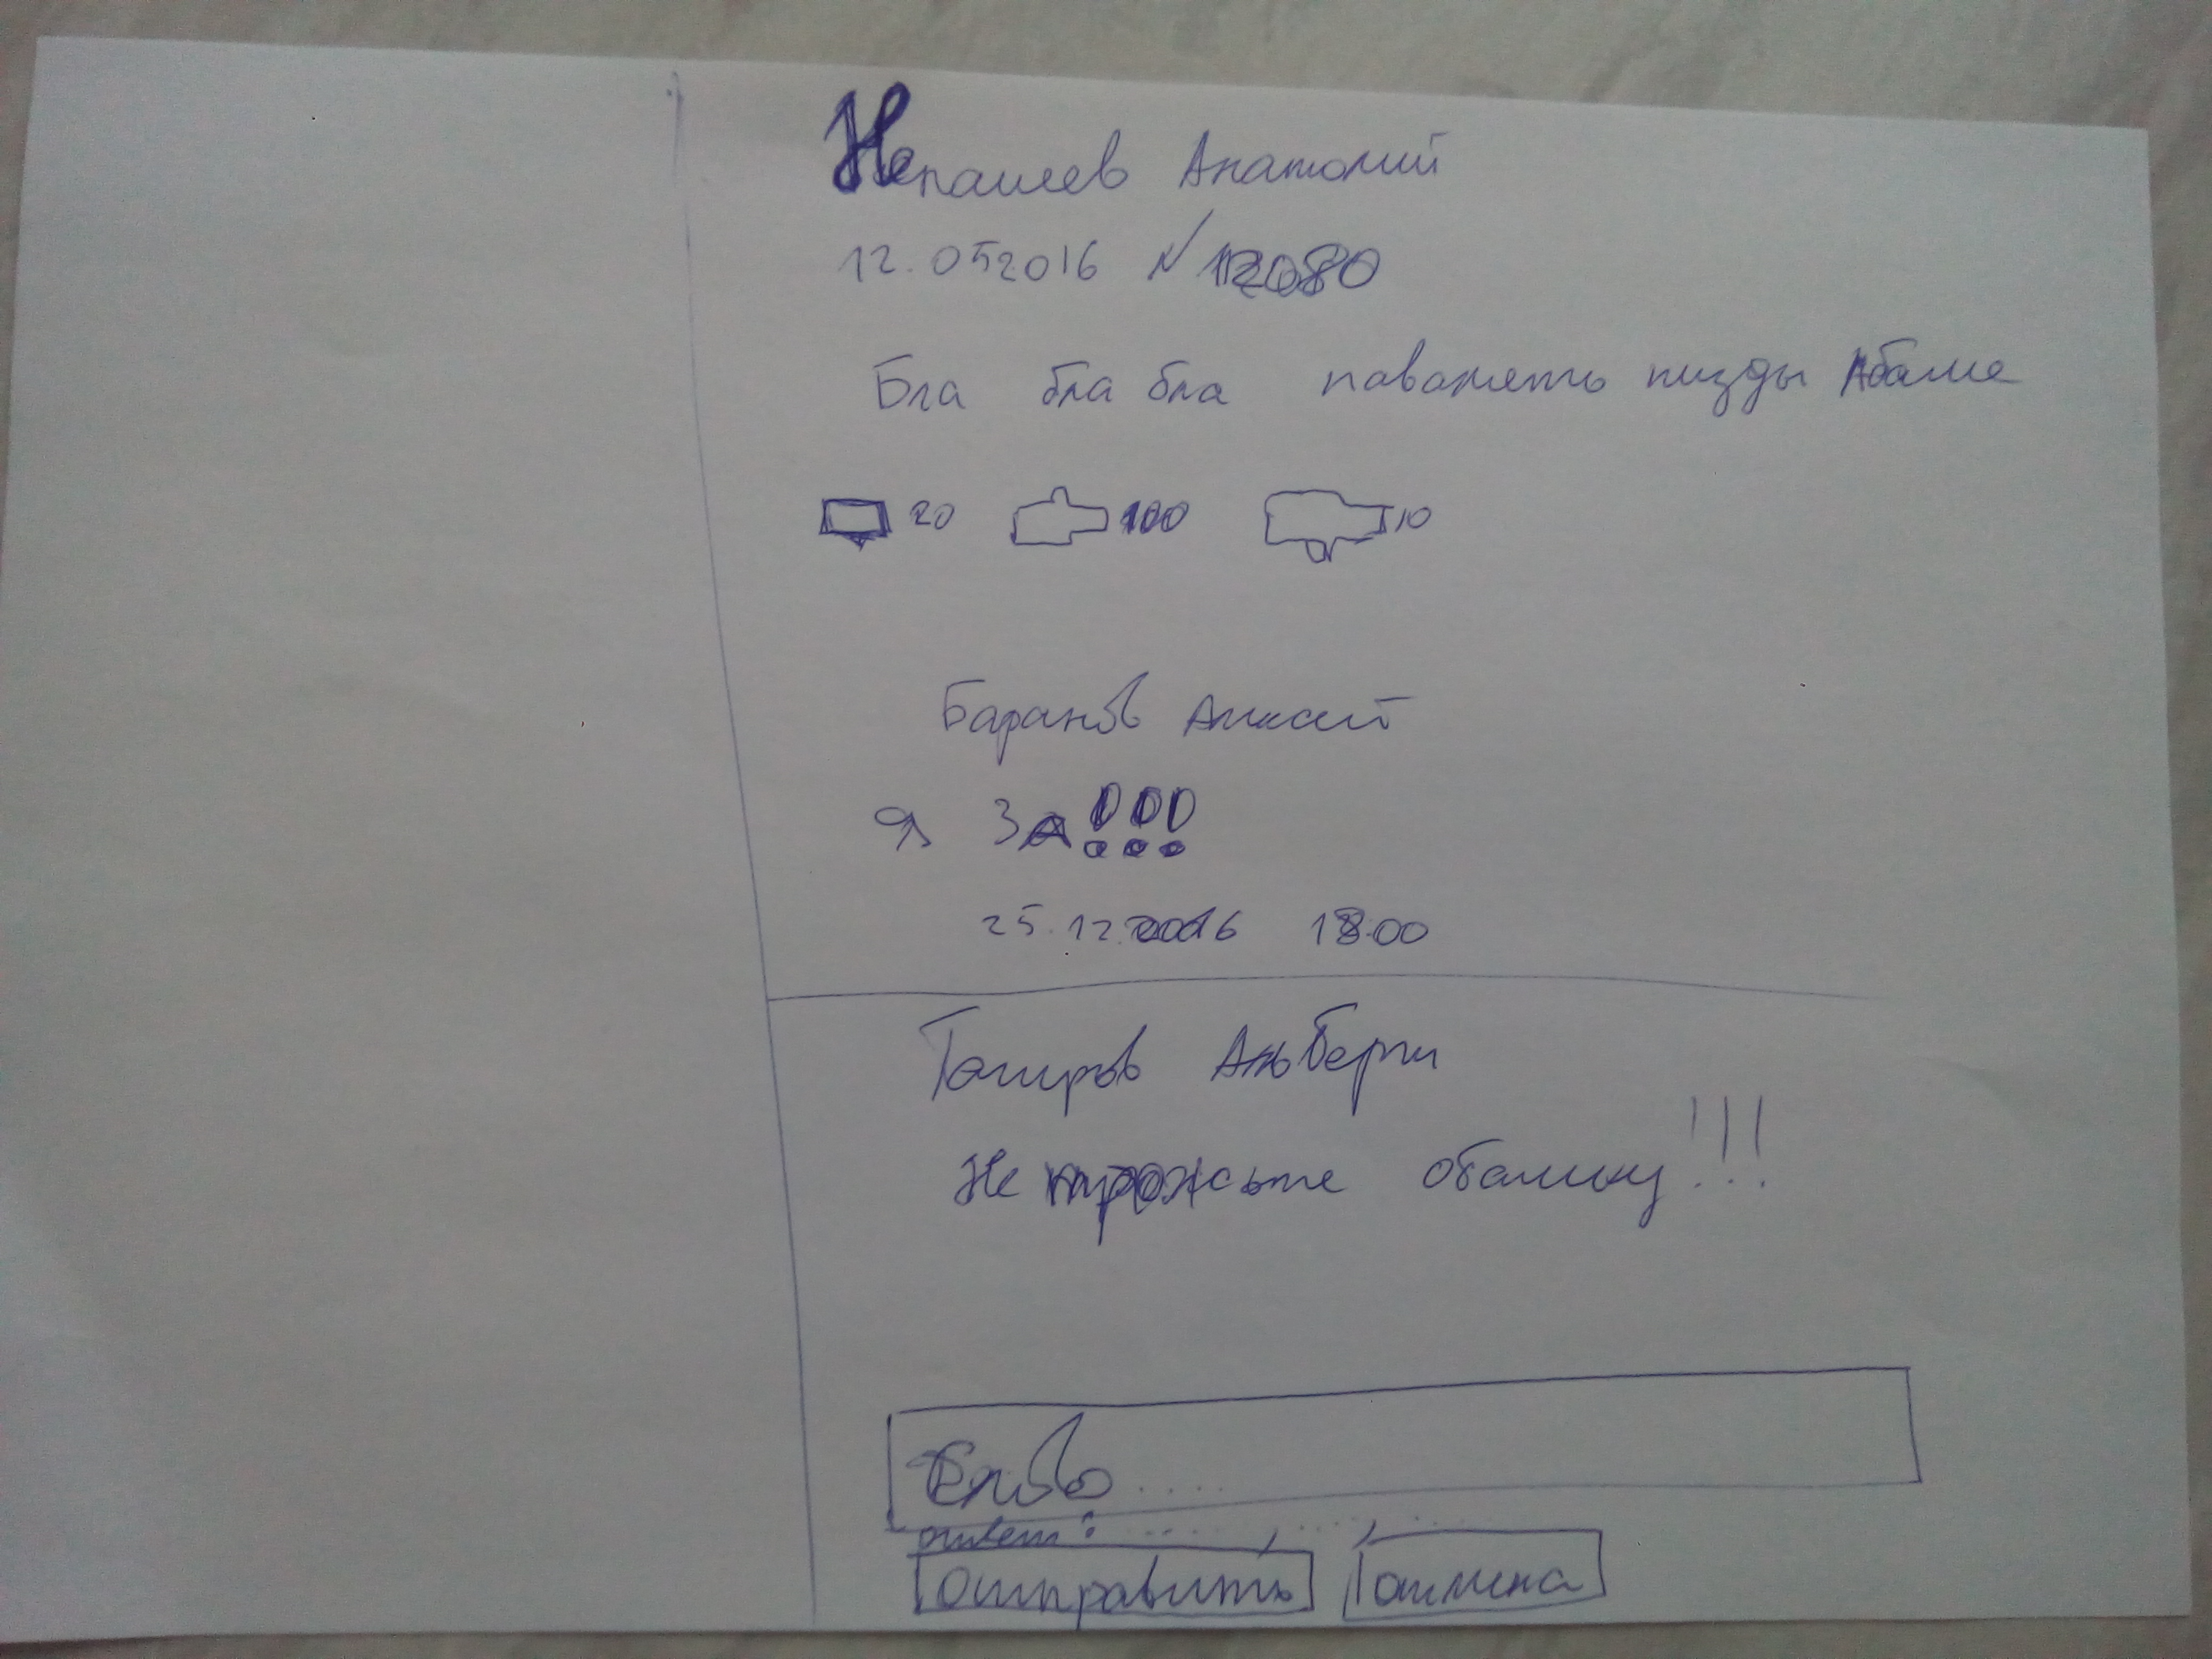 Непашев Анатолий
12.052016 №12080
Бла бла бла пизды Абаме
20 100 10
Баранов
Я ЗА!!!
25.12.2016 18:00
Тагиров Альберт
Не обамыу!!!
....
ответ: ....
Отправить отмена